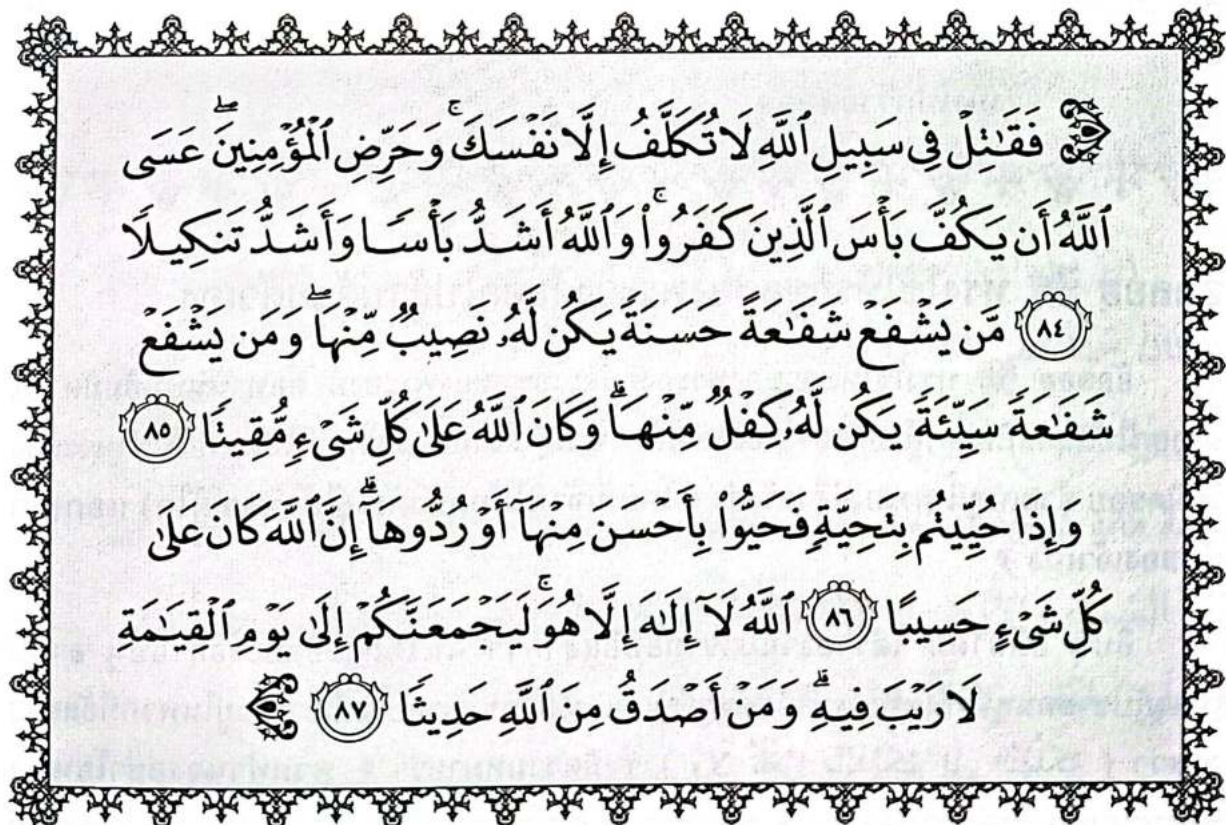 فَقَٰتِلْ فِى سَبِيلِ ٱللَّهِ لَا تُكَلَّفُ إِلَّا نَفْسَكَ ۚ وَحَرِّضِ ٱلْمُؤْمِنِينَ ۖ عَسَى
ٱللَّهُ أَن يَكُفَّ بَأْسَ ٱلَّذِينَ كَفَرُوا۟ ۚ وَٱللَّهُ أَشَدُّ بَأْسًا وَأَشَدُّ تَنكِيلًا
٨٤ مَّن يَشْفَعْ شَفَٰعَةً حَسَنَةً يَكُن لَّهُۥ نَصِيبٌ مِّنْهَا ۖ وَمَن يَشْفَعْ
شَفَٰعَةً سَيِّئَةً يَكُن لَّهُۥ كِفْلٌ مِّنْهَا ۗ وَكَانَ ٱللَّهُ عَلَىٰ كُلِّ شَىْءٍ مُّقِيتًا ٨٥
وَإِذَا حُيِّيتُم بِتَحِيَّةٍ فَحَيُّوا۟ بِأَحْسَنَ مِنْهَآ أَوْ رُدُّوهَآ ۗ إِنَّ ٱللَّهَ كَانَ عَلَىٰ
كُلِّ شَىْءٍ حَسِيبًا ٨٦ ٱللَّهُ لَآ إِلَٰهَ إِلَّا هُوَ ۚ لَيَجْمَعَنَّكُمْ إِلَىٰ يَوْمِ ٱلْقِيَٰمَةِ
لَا رَيْبَ فِيهِ ۗ وَمَنْ أَصْدَقُ مِنَ ٱللَّهِ حَدِيثًا ٨٧